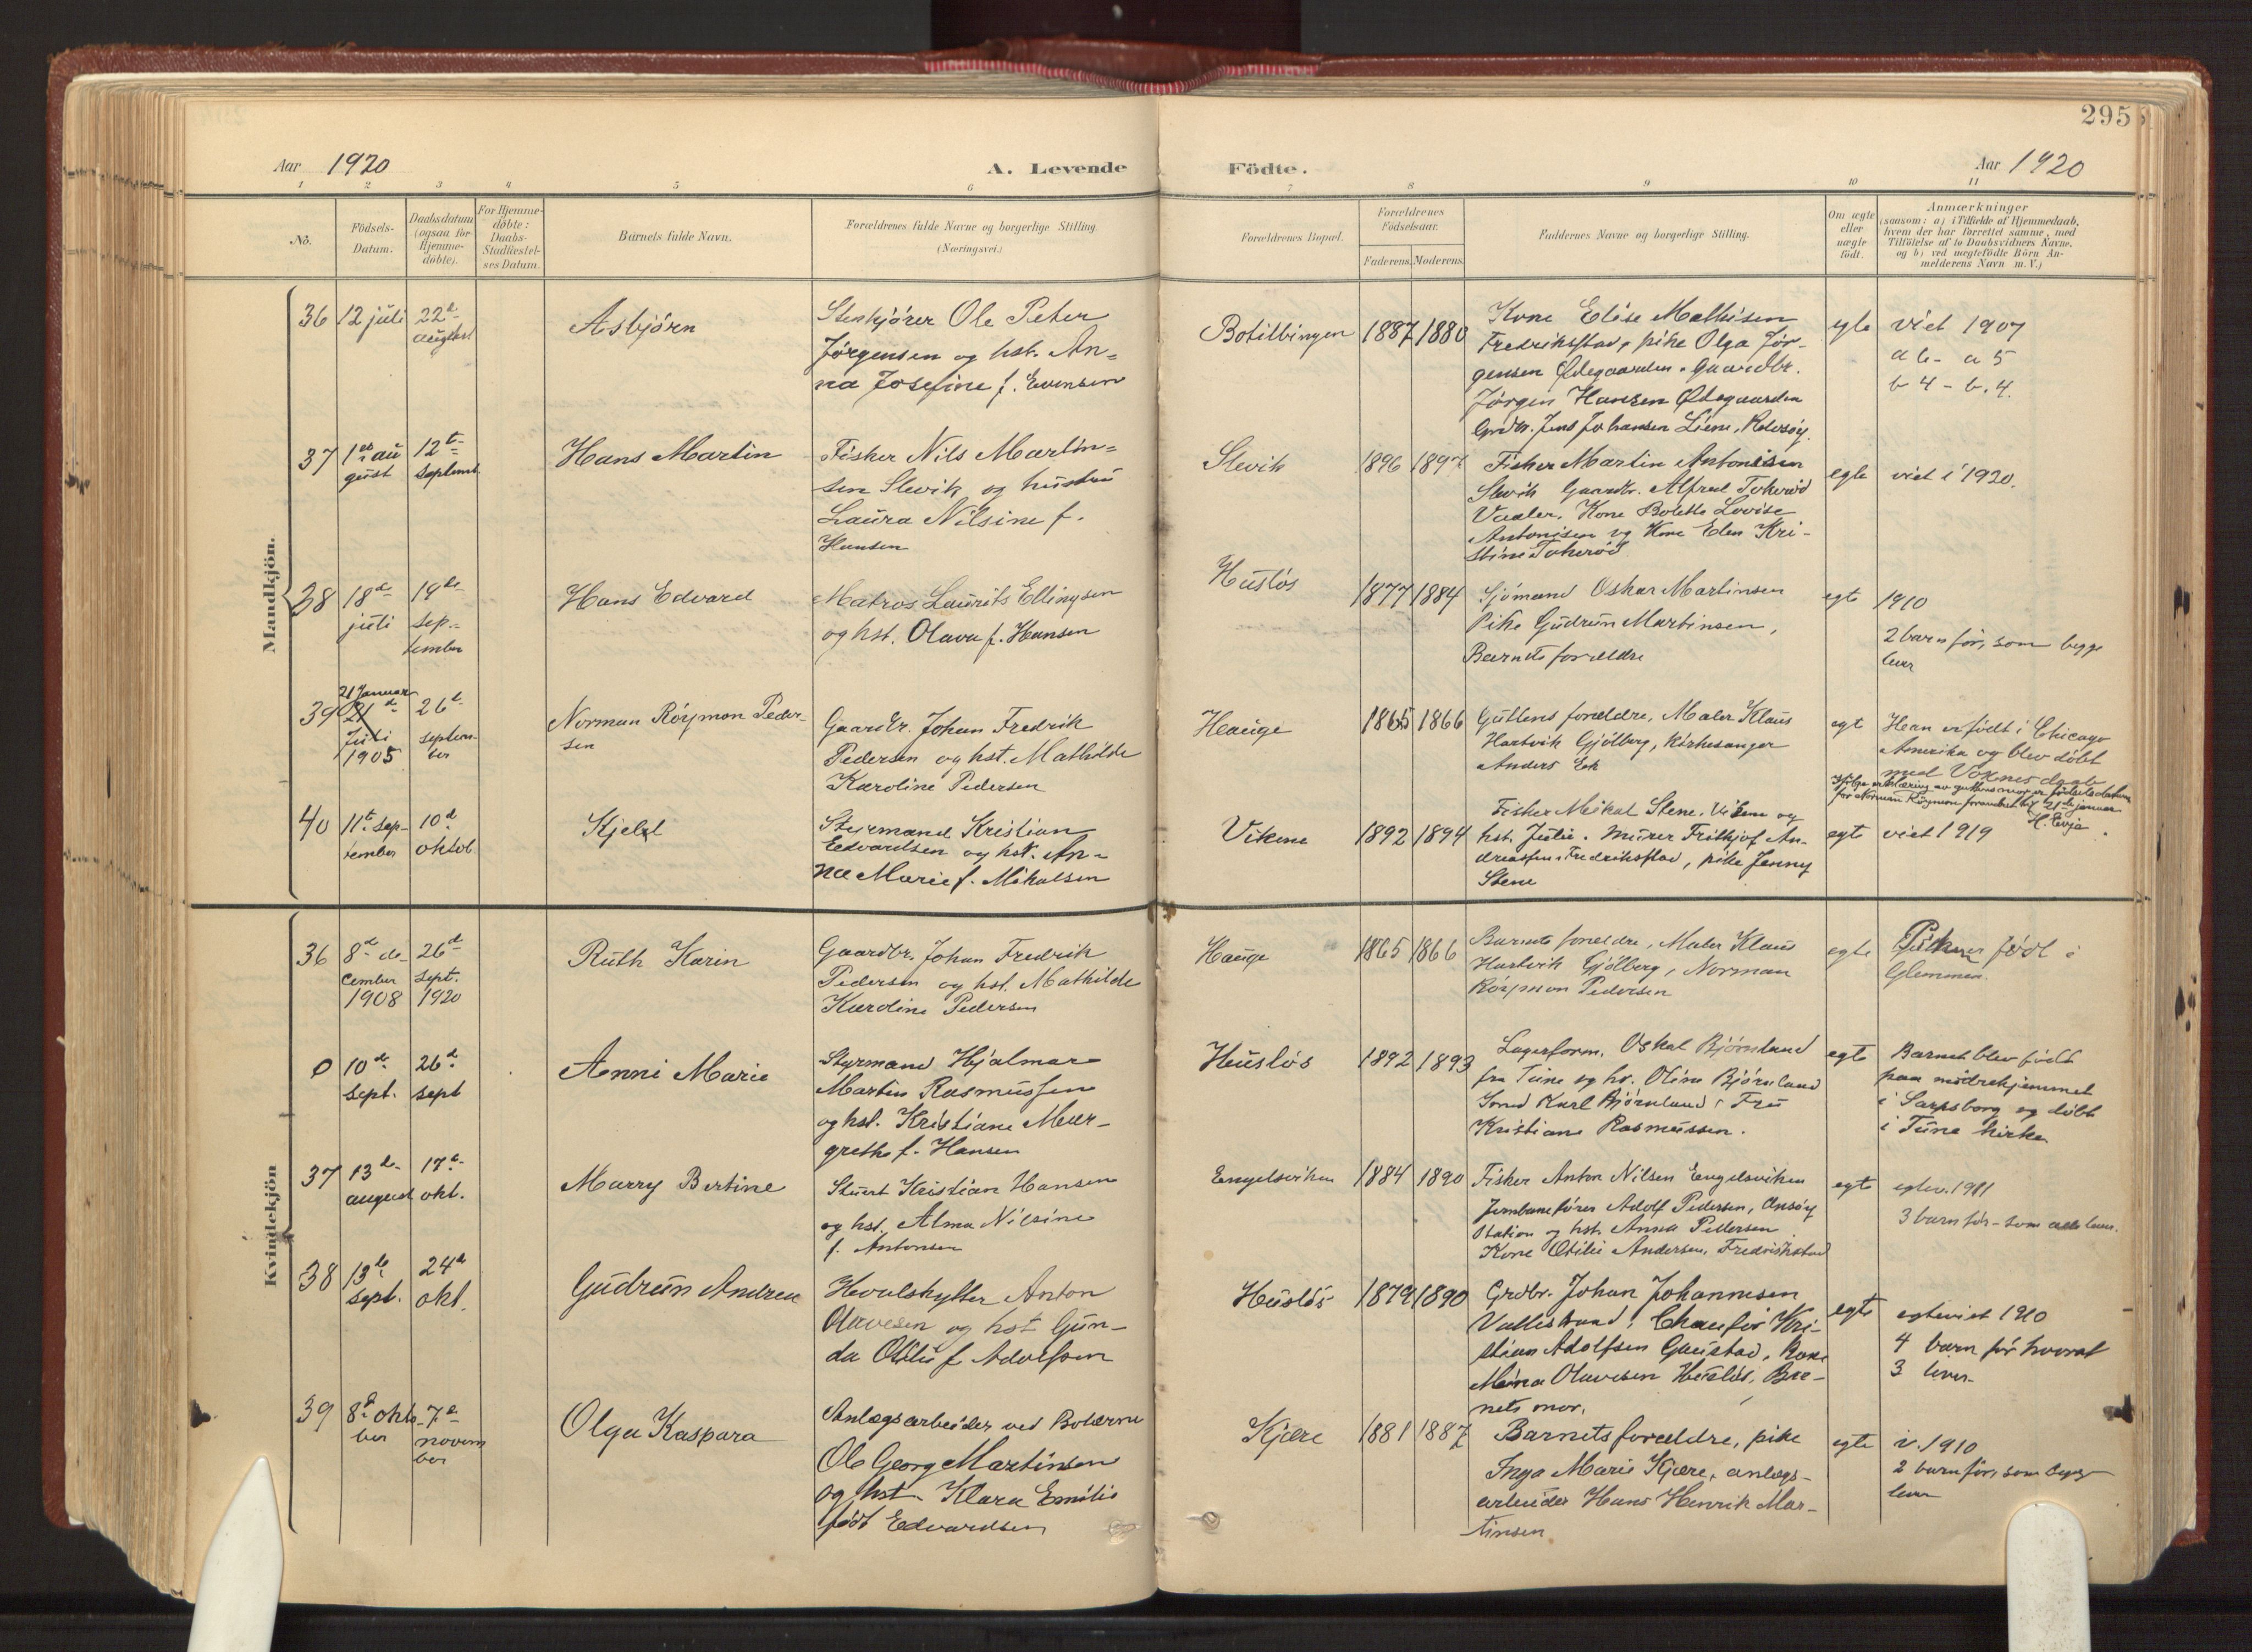 295
Aar 1920
A. Levende
Födte.
Aar 1920
1 2 3 4 5 6 7 8 9 10 11
No.
Födsels-
Datum.
Daabsdatum
(ogsaa for
Hjemme-
döbte).
For Hjemme-
döbte:
Daabs-
Stadfæstel-
ses Datum.
Barnets fulde Navn.
Forældrenes fulde Navne og borgerlige Stilling.
(Næringsvei.)
Forældrenes Bopæl.
Forældrenes
Födselsaar.
Faderens. Moderens.
Faddernes Navne og borgerlige Stilling.
Om ægte
eller
uægte
födt.
Anmærkninger
(saasom: a) i Tilfælde af Hjemmedaab,
hvem der har forrettet samme, med
Tilföielse af to Daabsvidners Navne,
og b) ved uægtefödte Börn An-
melderens Navn m. V.)
Mandkjön.
36
12 juli
22de
august
Asbjörn
Stenkjörer Ole Peter
Jørgensen og hst. An-
na Josefine f. Evensen
1887 1880
Kone Elise Mathisen
Fredriksstad, pike Olga Jör-
gensen Ødegaarden. Gaardbr.
Jørgen Hansen Ødegaarden
Grdbr. Jens Johansen Liene,
egte
viet 1907
b 4 - b. 4.
37
1ste au
gust
12te
Septemb.
Hans Martin
Fisker Nils Martin-
sen Slevik og hustru
Laura Nilsine f.
Hansen
Slevik
1896 1897
Fisker Martin Antonisen
Slevik Gaardbr. Alfred Tokeröd
Vaaler. Kone Bolette Lovise
Antonisen og Kone Elen Kri-
stine Tokeröd
egte
viet i 1920.
38
18de
juli
19de
Sep-
tember
Hans Edvard
Matros Laurits Ellingsen
og hst. Olava f. Hansen
Huslös
1877 1884
Sjömand Oskar Martinsen
Pike Gudrun Martinsen,
Barnets forældre
egte
1910
2 barn för, som begge
lever
39
21 Januar
21de
Juli
1905
26de
septem-
ber
Norman Röymon Peder-
sen
Gaardbr. Johan Fredrik
Pedersen og hst. Mathilde
Karoline Pedersen
Hauge
1865 1866
Guttens forældre, Maler Klaus
Hartvik Gjölberg, Kirkesanger
Anders Ek
egt
Han er födt i Chicago
Amerika og blev döbt
med Voxnes daab
Ifölge erklæring av guttens mor er födselsdatum
for Norman Röymon forandret til 21de januar
H. Evje.
40
11te Sep-
tember
10de
oktob.
Kjeld
Styrmand Kristian
Edvardsen og hst. An-
na Marie f. Mikalsen
Vikene
1892 1894
Fisker Mikal Stene, Viken og
hst. Julie. Murer Fritkjof An-
dreassen Fredriksstad, pike Jenny
Stene
egt
viet 1919
Kvindekjön
36
8de de-
cember
1908
26de
Sept.
1920
Ruth Karin
Gaardbr. Johan Fredrik
Pedersen og hst. Mathilde
Karoline Pedersen
Hauge
1865 1866
Barnets forældre, Maler Klaus
Hartvik Gjölberg, Norman
Röymon Pedersen
egte
Piken födt i
Glemmen.
0
10de
Sept.
26de
sept
Anni Marie
Styrmand Hjalmar
Martin Rasmussen
og hst. Kristiane Mar-
grethe f. Hansen
Huslös
1892 1893
Lagerform. Oskal Björnland
fra Tune og hs. Oline Björnland
Smed Karl Björnland, Fru
Kristiane Rasmussen.
egte
Barnet blev födt
paa mödrehjemmet
i Sarpsborg og döbt
i Tune kirke
37
13de
august
17de
okt.
Marry Bertine
Stuert Kristian Hansen
og hst. Alma Nilsine
f. Antonsen
Engelsviken
1884 1890
Fisker Anton Nilsen Engelsviken
Jernbaneförer Adolf Pedersen, Onsöy
Station og hst. Anna Pedersen
Kone Otilie Andersen, Fredrikstad
egte
egtev. 1911
3 barn för - som alle lever.
38
13de
Sept.
24de
okt.
Gudrun Andrea
Hvalskytter Anton
Olavesen og hst Gun-
da Otilie f Adolfsen
Huslös
1879 1890
Grdbr. Johan Johannesen
Vallistrand, Chaufför Kri-
stian Adolfsen Gaustad, Kone
Mina Olavesen Huslös, Bar-
nets mor.
egte
egteviet 1910
4 barn för hvorav
3 lever
39
8de okto-
ber
7de
novem
ber
Olga Kaspara
Anlægsarbeider ved Botærne
Ole Georg Martinsen
og hst. Klara Emilie
födt Edvardsen
Kjære
1881 1887
Barnets forældre, pike
Inga Marie Kjære, anlægs-
arbeider Hans Henrik Mar-
tinsen
egte
v. 1910
2 barn för, som begge
lever